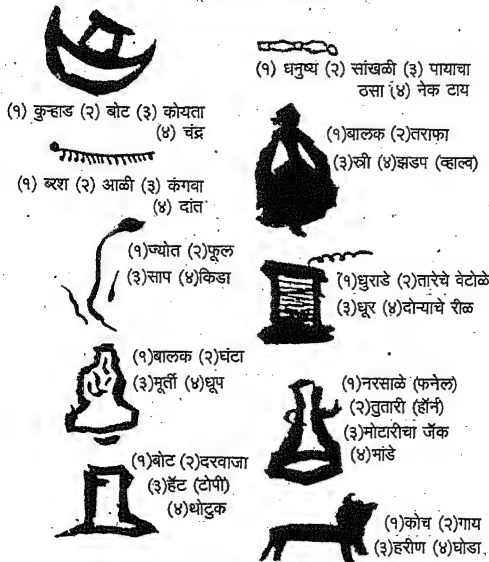 (१) कुऱ्हाड (२) बोट (३) कोयता
(४) चंद्र
(१) ब्रश (२) आळी (३) कंगवा
(४) दांत
(१)ज्योत (२)फूल
(३)साप (४)किडा
(१)बालक (२)घंटा
(३)मूर्ती (४)धूप
(१)बोट (२)दरवाजा
(३)हॅट (टोपी)
(४)थोटुक
(१) धनुष्य (२) सांखळी (३) पायाचा
ठसा (४) नेक टाय
(१)बालक (२)तराफा
(३)स्त्री (४)झडप (व्हाल्व)
(१)धुराडे (२)तारेचे वेटोळे
(३)धूर (४)दोऱ्याचे रीळ
(१)नरसाळे (फनेल)
(२)तुतारी (हॉर्न)
(३)मोटारीचा जॅक
(४)मांडे
(१)कोच (२)गाय
(३)हरीण (४)घोडा